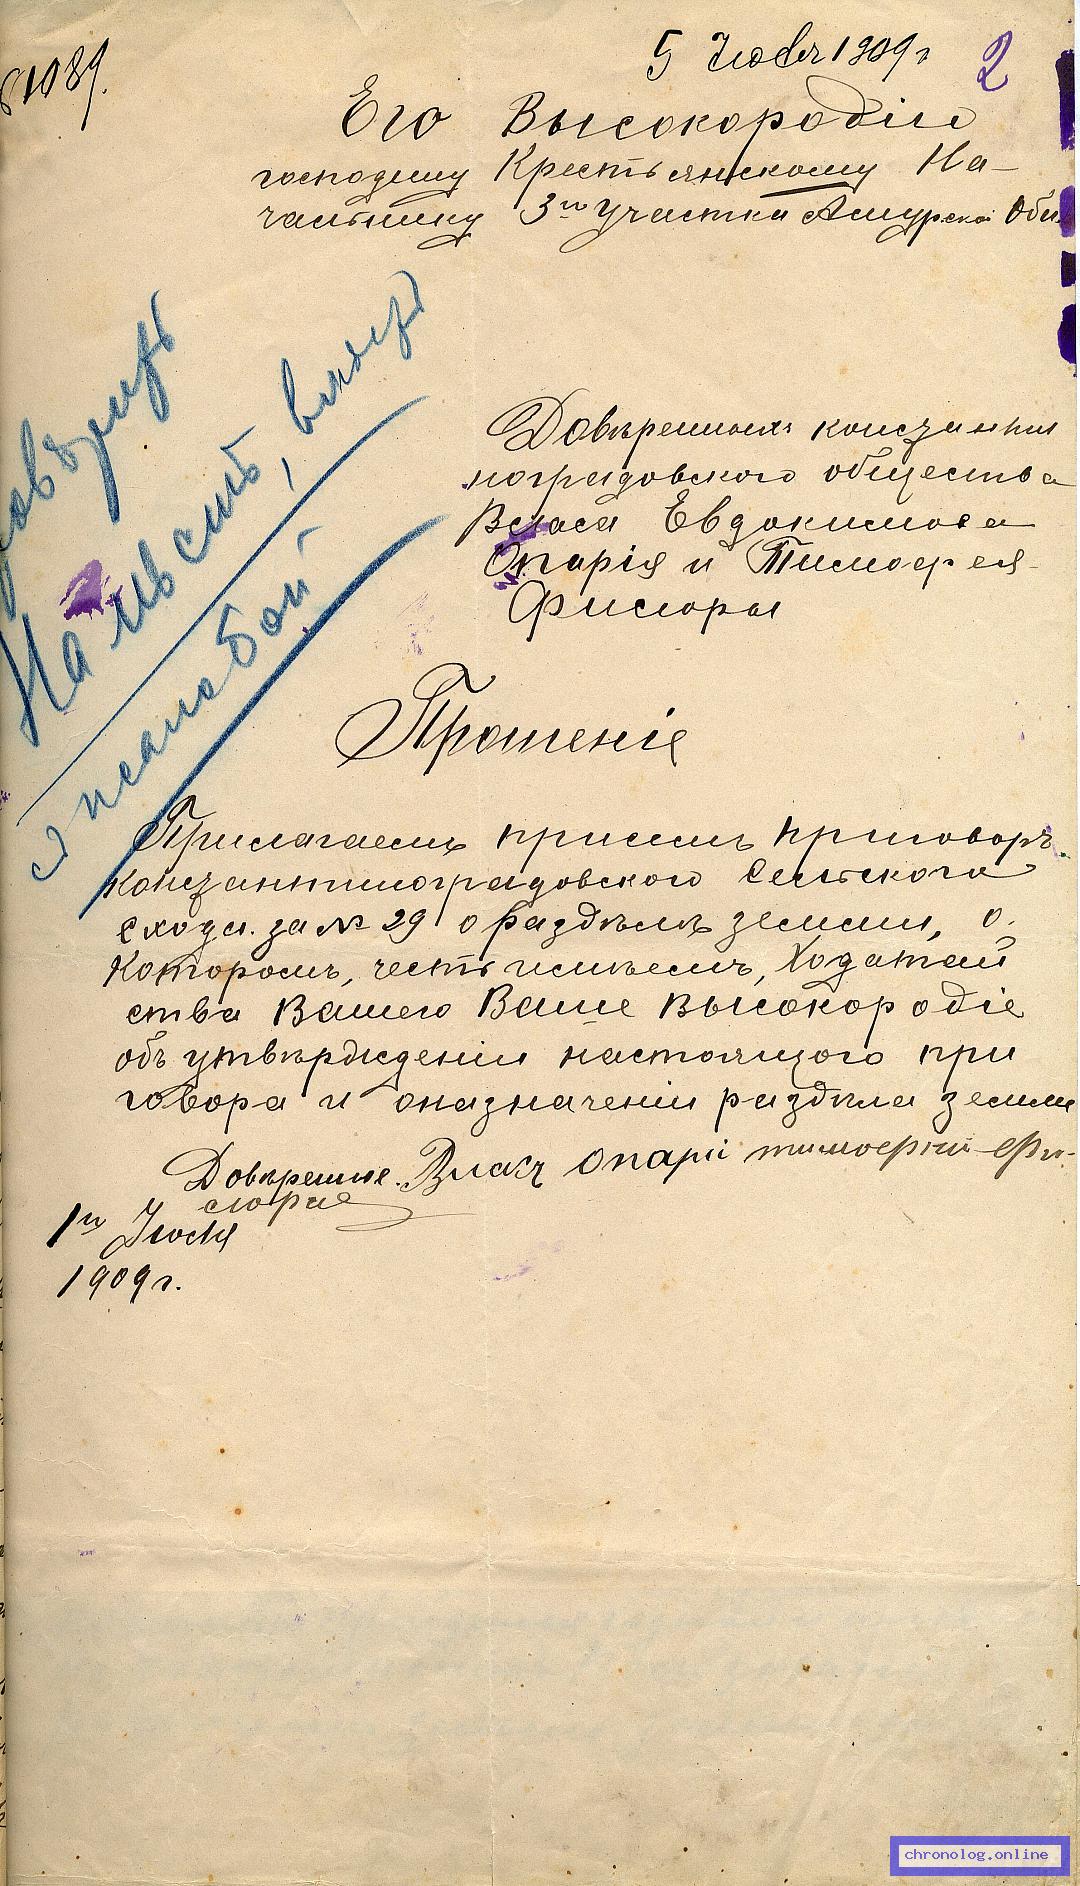 1089.
5 Июля 1909 г
2
Его Высокородію
господину Крестьянскому На-
чальнику 3го участка Амурской Обл.
Довѣренныхъ константи
ноградовского общества
Власа Евдокимова
Опарія и Тимофея
Фисюры
Прошеніе
Прилагаемъ присемъ приговоръ
констаннтиноградовского Сельского
схода. за № 29 о раздѣлѣ земли, о
котором, честь имѣемъ, Ходатай
ства Вашего Ваше высокородіе
объ утвѣрждении настоящого при
говора и оназначении раздѣла земли
Довѣреные. Власъ Опарій тимофей Фи-
сюра
1го Июля
1909 г.
На мѣстѣ,
chronolog.online